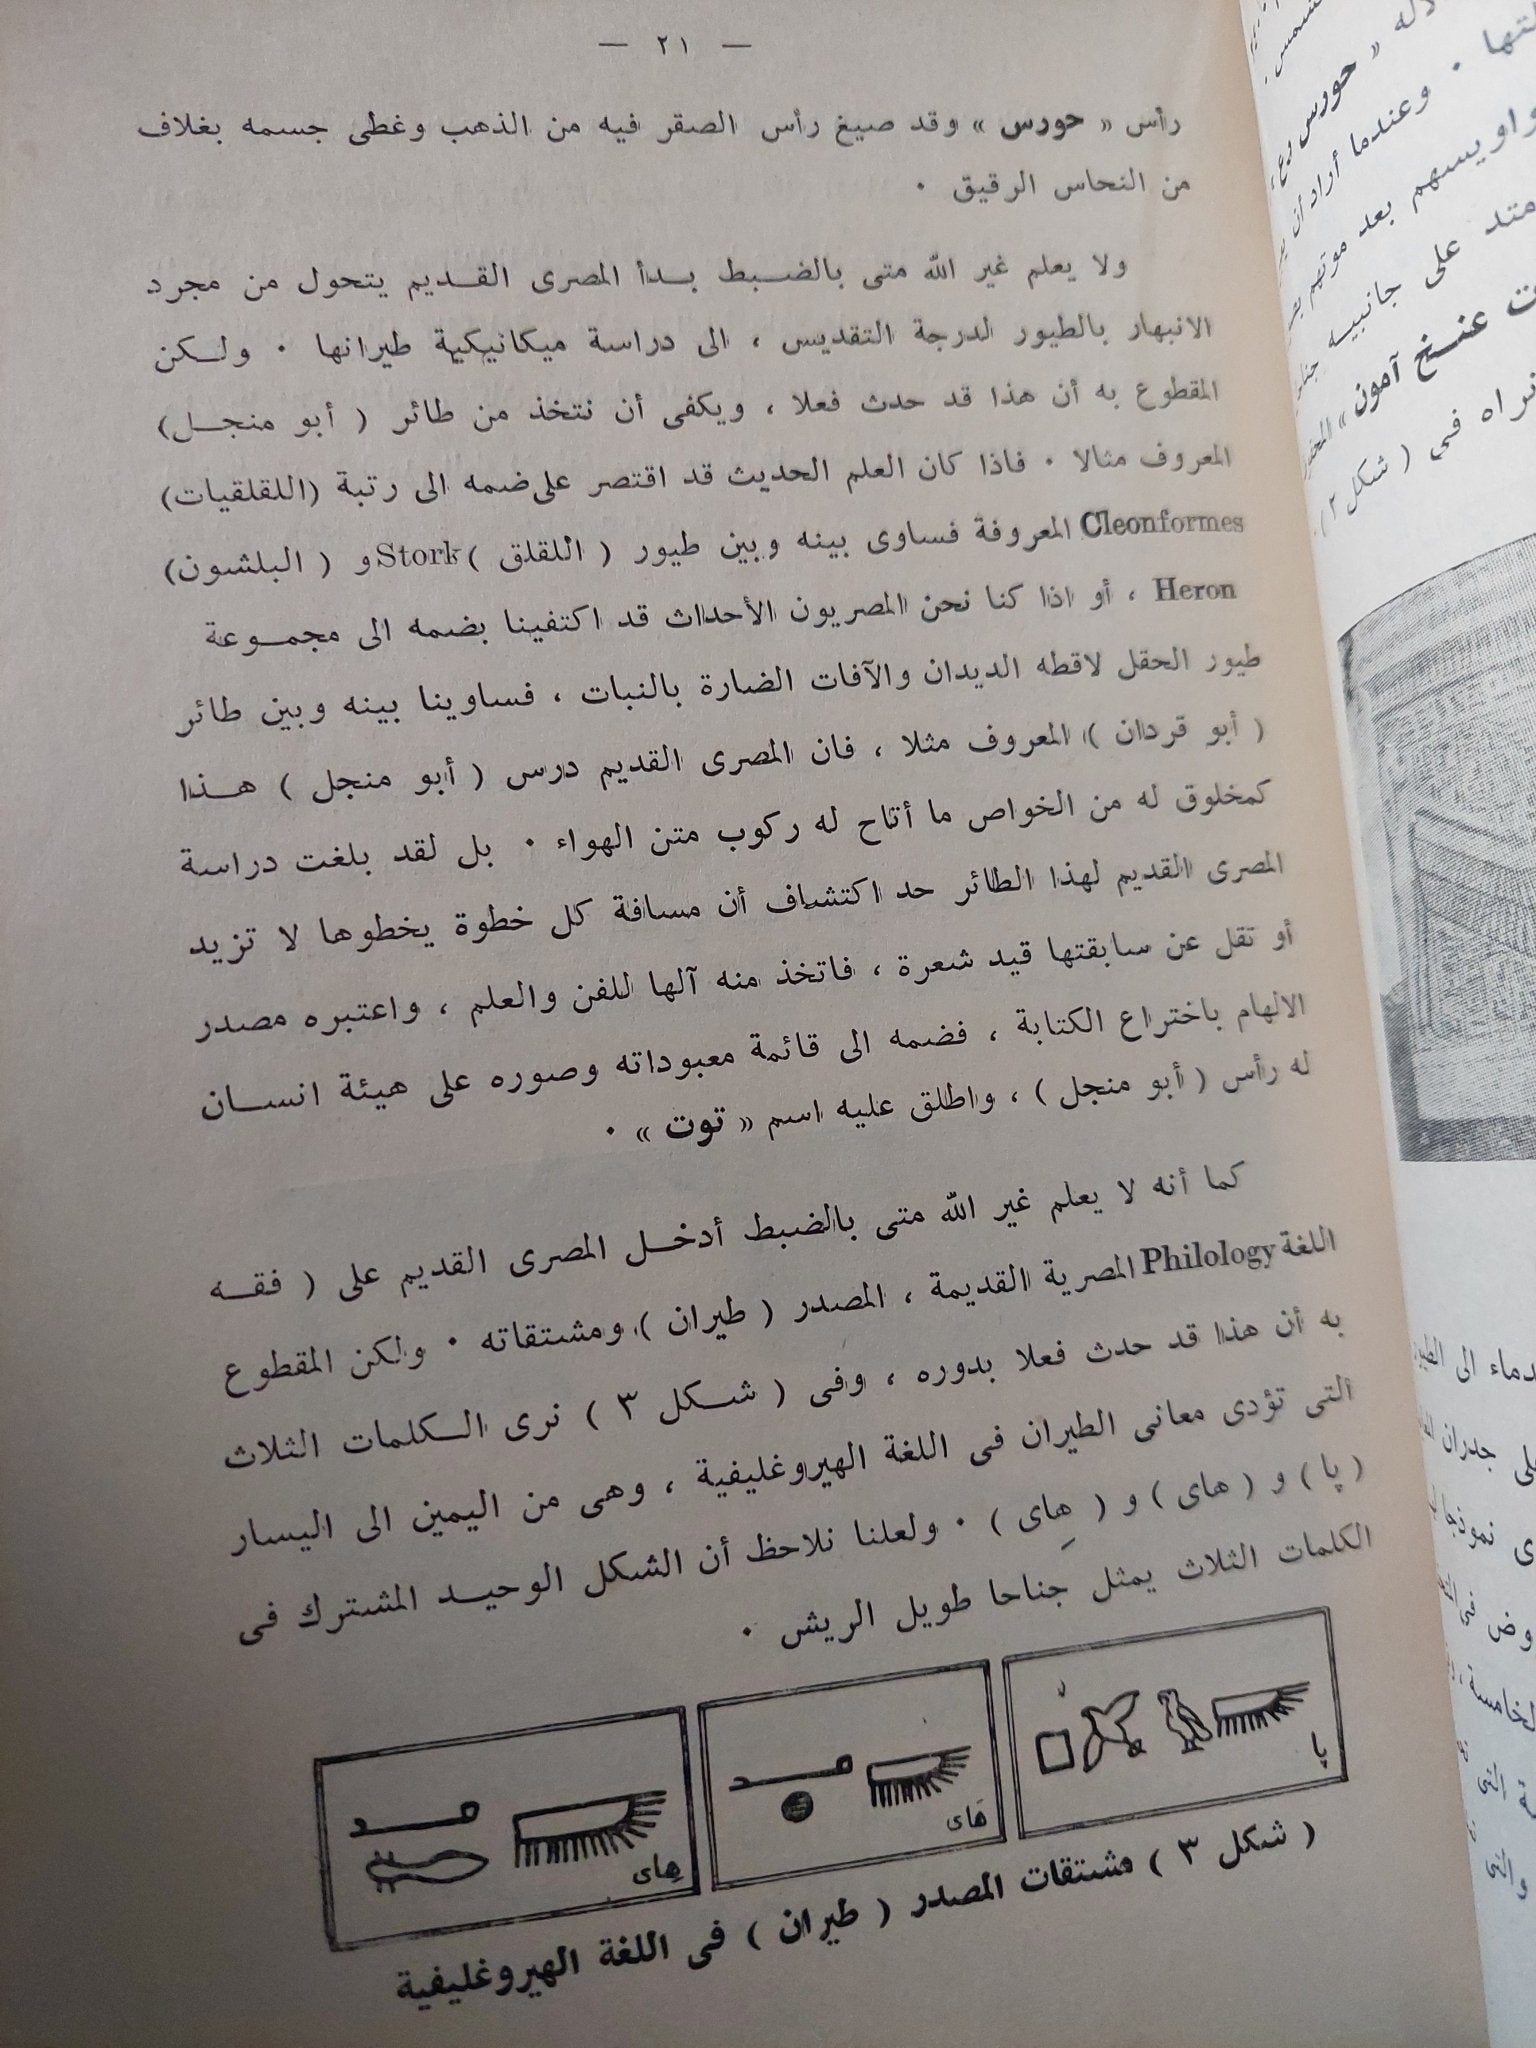 — ٢١ —
رأس « حورس » وقد صيغ رأس الصقر فيه من الذهب وغطى جسمه بغلاف
من النحاس الرقيق ٠
ولا يعلم غير الله متى بالضبط بدأ المصرى القديم يتحول من مجرد
الانبهار بالطيور لدرجة التقديس ، الى دراسة ميكانيكية طيرانها ٠ ولكن
المقطوع به أن هذا قد حدث فعلا ، ويكفى أن نتخذ من طائر ( أبو منجل)
المعروف مثالا ٠ فاذا كان العلم الحديث قد اقتصر على ضمه الى رتبة (اللقلقيات)
Cleonformes المعروفة فساوى بينه وبين طيور ( اللقلق ) Stork و ( البلشون)
Heron ، أو اذا كنا نحن المصريون الأحداث قد اكتفينا بضمه الى مجموعة
طيور الحقل لاقطه الديدان والآفات الضارة بالنبات ، فساوينا بينه وبين طائر
( أبو قردان ) المعروف مثلا ، فان المصرى القديم درس ( أبو منجل ) هذا
كمخلوق له من الخواص ما أتاح له ركوب متن الهواء ٠ بل لقد بلغت دراسة
المصرى القديم لهذا الطائر حد اكتشاف أن مسافة كل خطوة يخطوها لا تزيد
أو تقل عن سابقتها قيد شعرة ، فاتخذ منه آلها للفن والعلم ، واعتبره مصدر
الالهام باختراع الكتابة ، فضمه الى قائمة معبوداته وصوره على هيئة انسان
له رأس ( أبو منجل ) ، واطلق عليه اسم « توت » ٠
كما أنه لا يعلم غير الله متى بالضبط أدخل المصرى القديم على ( فقه
اللغة Philology المصرية القديمة ، المصدر ( طيران ) ومشتقاته ٠ ولكن المقطوع
به أن هذا قد حدث فعلا بدوره ، وفى ( شكل ٣ ) نرى الكلمات الثلاث
التى تؤدى معانى الطيران فى اللغة الهيروغليفية ، وهى من اليمين الى اليسار
( پا ) و ( هاى ) و ( هِاى ) ٠ ولعلنا نلاحظ أن الشكل الوحيد المشترك فى
الكلمات الثلاث يمثل جناحا طويل الريش ٠
پا
هَاى
هِاى
( شكل ٣ ) مشتقات المصدر ( طيران ) فى اللغة الهيروغليفية
« حورس رع،
وعندما أراد أن
بعد موتهم
متد على جانبيه
عنخ آمون »
نراه فى ( شكل ٢ )